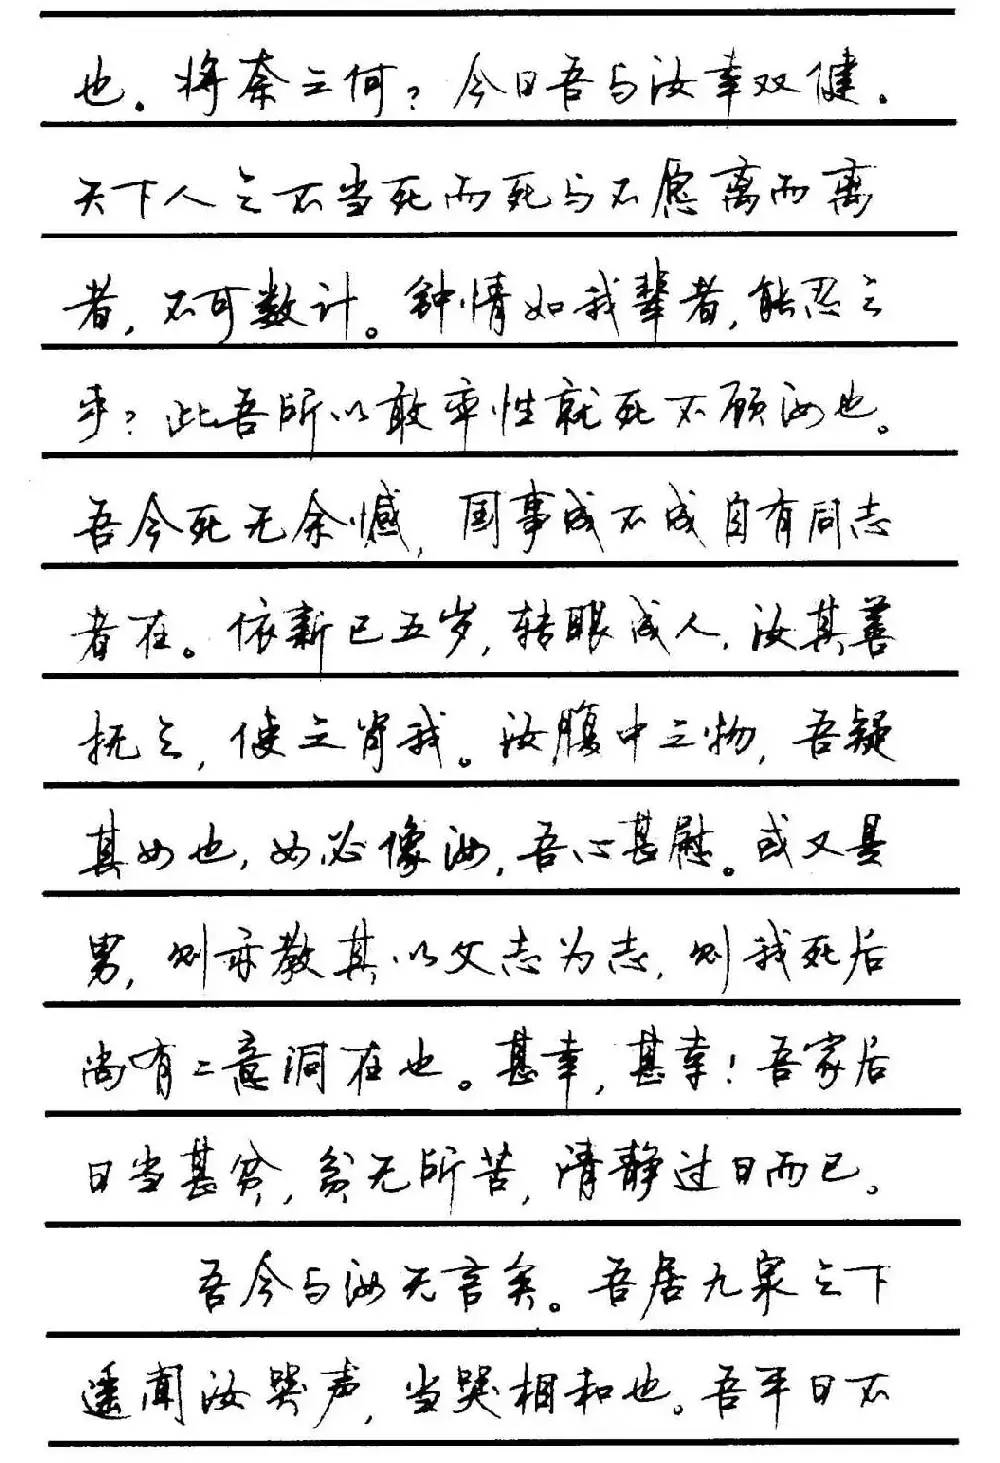 也。将奈之何？今日吾与汝幸双健．
天下人之不当死而死与不愿离而离
者，不可数计。钟情如我辈者，能忍之
乎？此吾所以敢率性就死不顾汝也。
吾今死无余憾，国事成不成自有同志
者在。依新已五岁，转眼成人，汝其善
抚之，使之肖我。汝腹中之物，吾疑
其女也，女必像汝，吾心甚慰。或又是
男，则亦教其以父志为志，则我死后
尚有二意洞在也。甚幸，甚幸！吾家后
日当甚贫，贫无所苦，清静过日而已。
吾今与汝无言矣。吾居九泉之下
遥闻汝哭声，当哭相和也。吾平日不